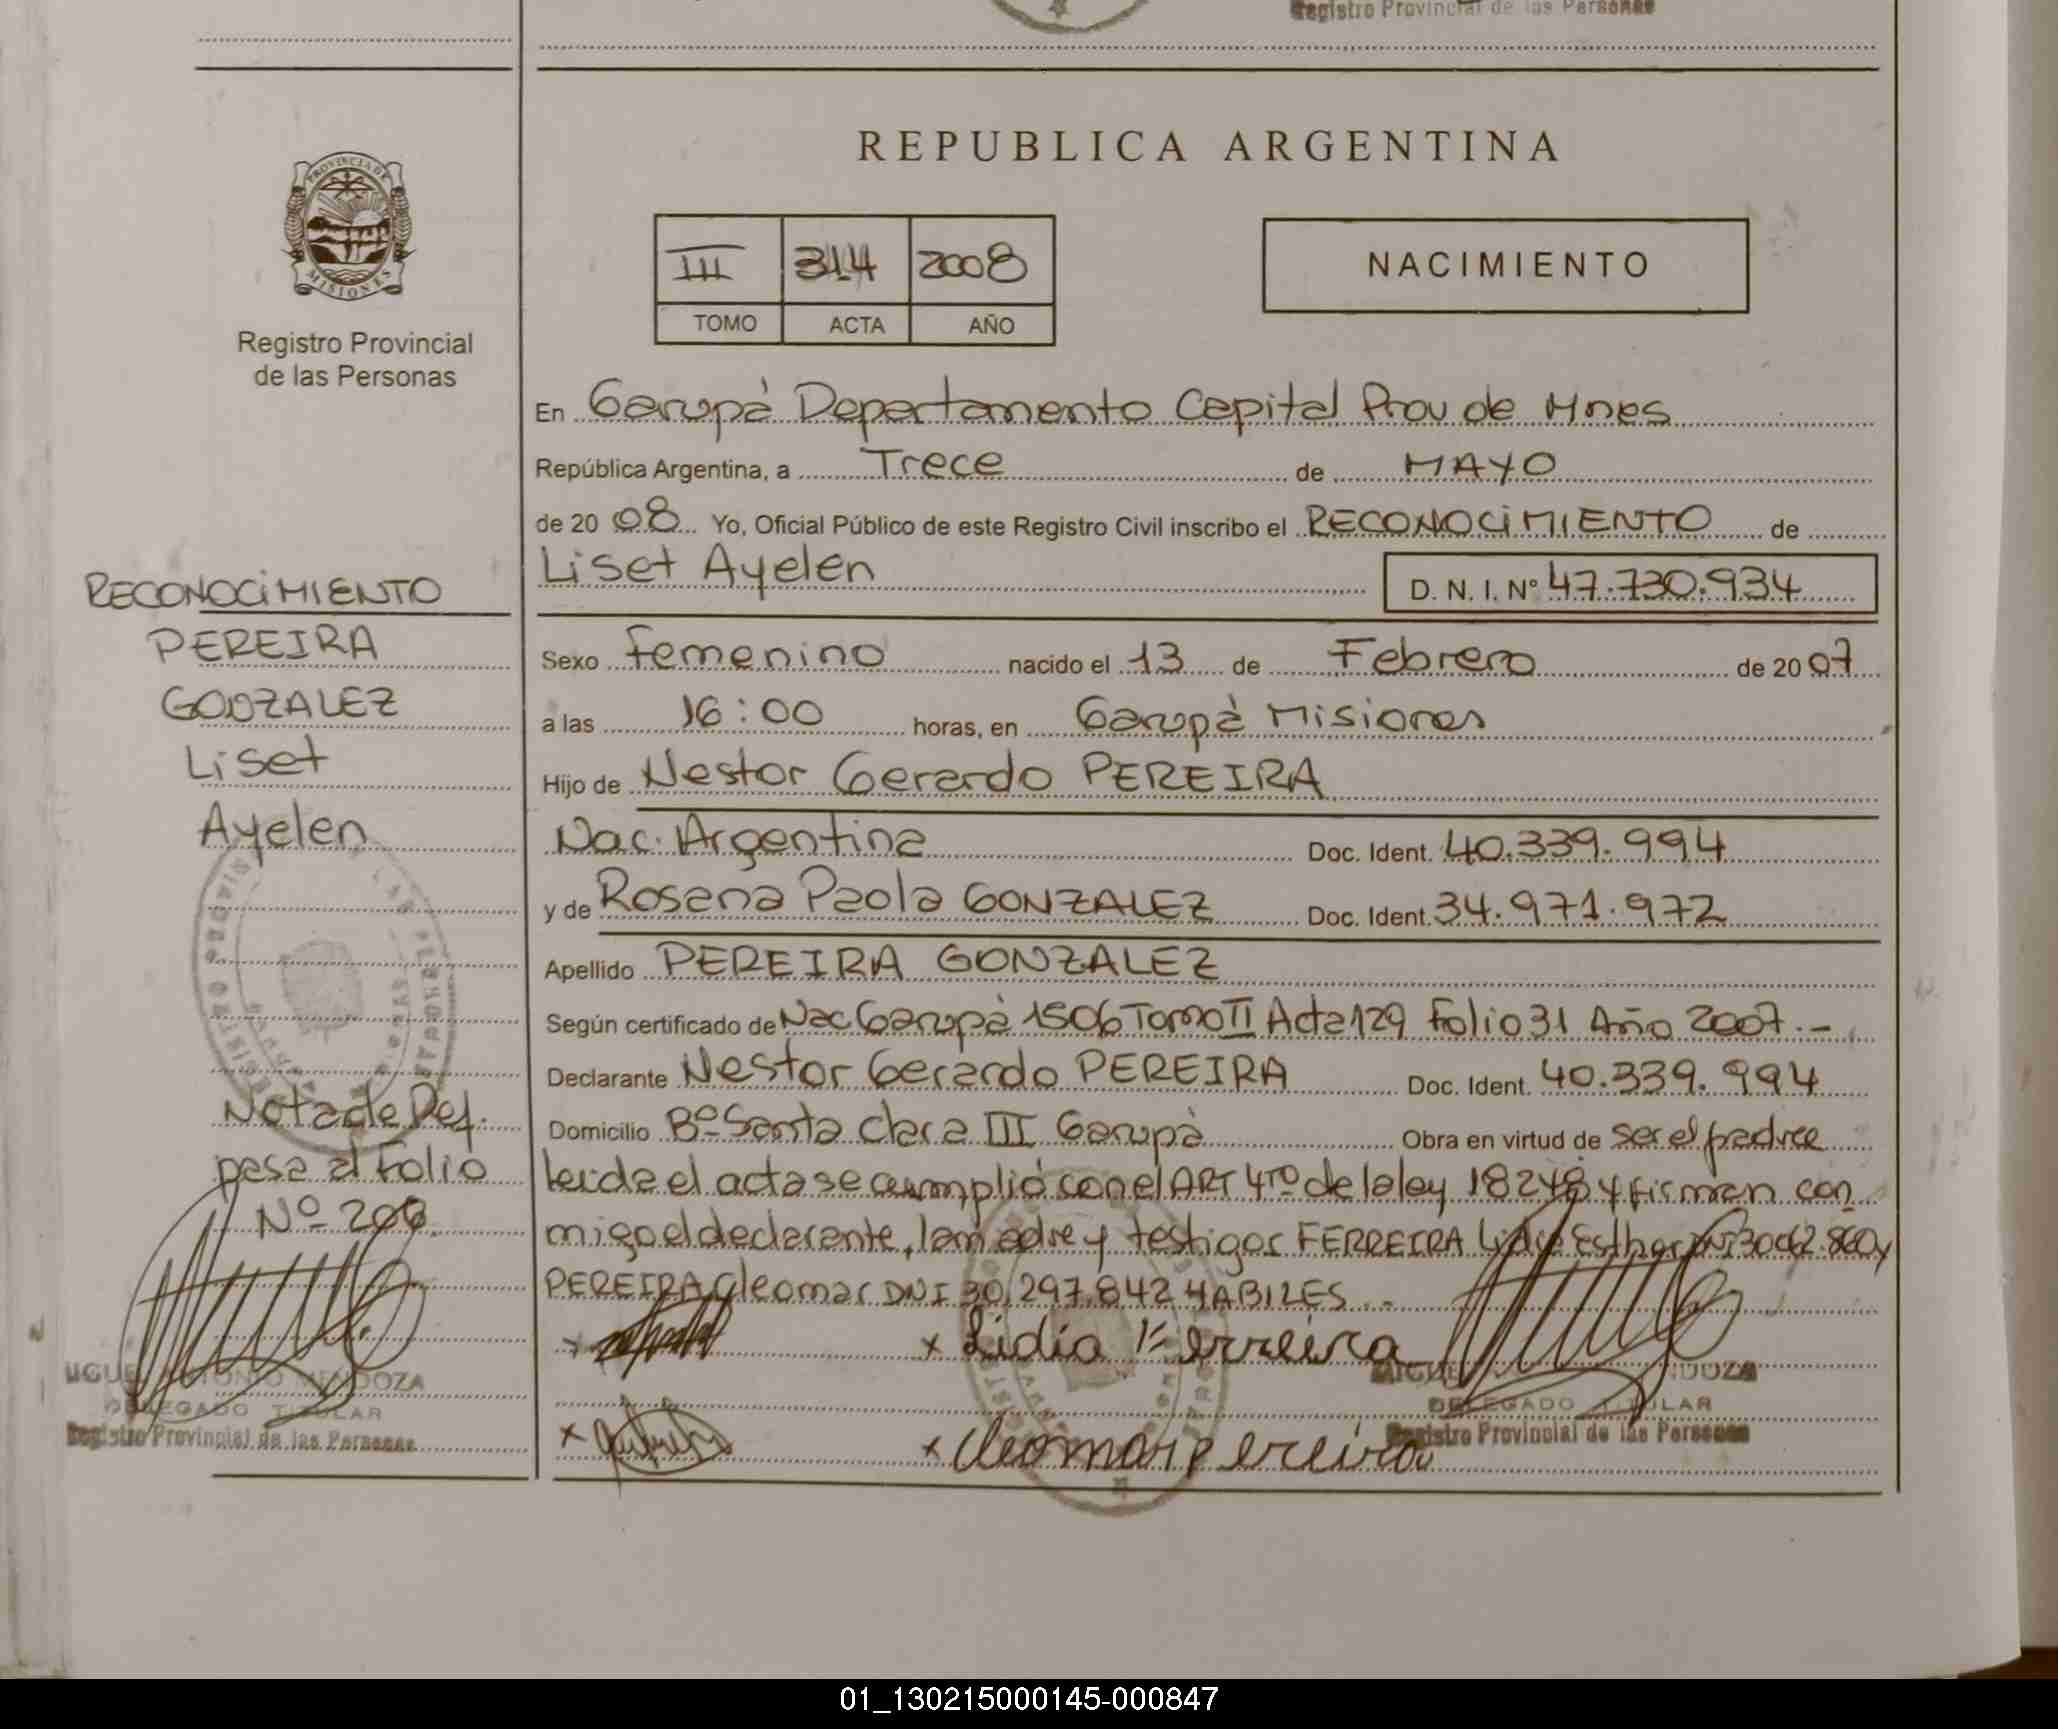 Registro Provincial de las Personas
REPUBLICA ARGENTINA
PROVINCIA DE
MISIONES
Registro Provincial
de las Personas
III 314 2008
TOMO ACTA AÑO
NACIMIENTO
En Garupà Departamento Capital Prov de Mnes
República Argentina, a Trece de MAYO
de 20 08 Yo, Oficial Público de este Registro Civil inscribo el RECONOCIMIENTO de
Liset Ayelen D. N. I. Nº 47.730.934
Sexo Femenino nacido el 13 de Febrero de 20 07
a las 16:00 horas, en Garupà Misiones
Hijo de Nestor Gerardo PEREIRA
Nac. Argentina Doc. Ident. 40.339.994
y de Rosana Paola GONZALEZ Doc. Ident. 34.971.972
Apellido PEREIRA GONZALEZ
Según certificado de Nac Garupà 1506 Tomo II Acta 129 Folio 31 Año 2007.-
Declarante Nestor Gerardo PEREIRA Doc. Ident. 40.339.994
Domicilio Bº Santa Clara III Garupà Obra en virtud de ser el padre
leida el acta se cumplió con el ART 4to de la ley 18248 y firman con
migo el declarante, la madre y testigos FERREIRA Lidia Esther DNI y
PEREIRA Cleomar DNI 30.297.842 HABILES
x x Lidia Ferreira
x x Cleomar Pereira
DELEGADO TITULAR
Registro Provincial de las Personas
RECONOCIMIENTO
PEREIRA
GONZALEZ
Liset
Ayelen
Nota de Def.
pasa al Folio
Nº 200
MIGUEL ANTONIO MENDOZA
DELEGADO TITULAR
Registro Provincial de las Personas
01_130215000145-000847